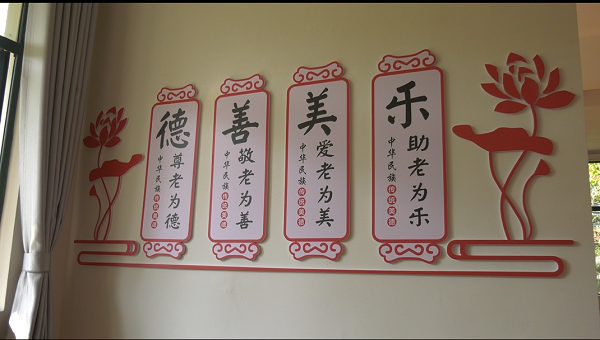 德
尊老为德
中华民族传统美德
善
敬老为善
中华民族传统美德
美
爱老为美
中华民族传统美德
乐
助老为乐
中华民族传统美德